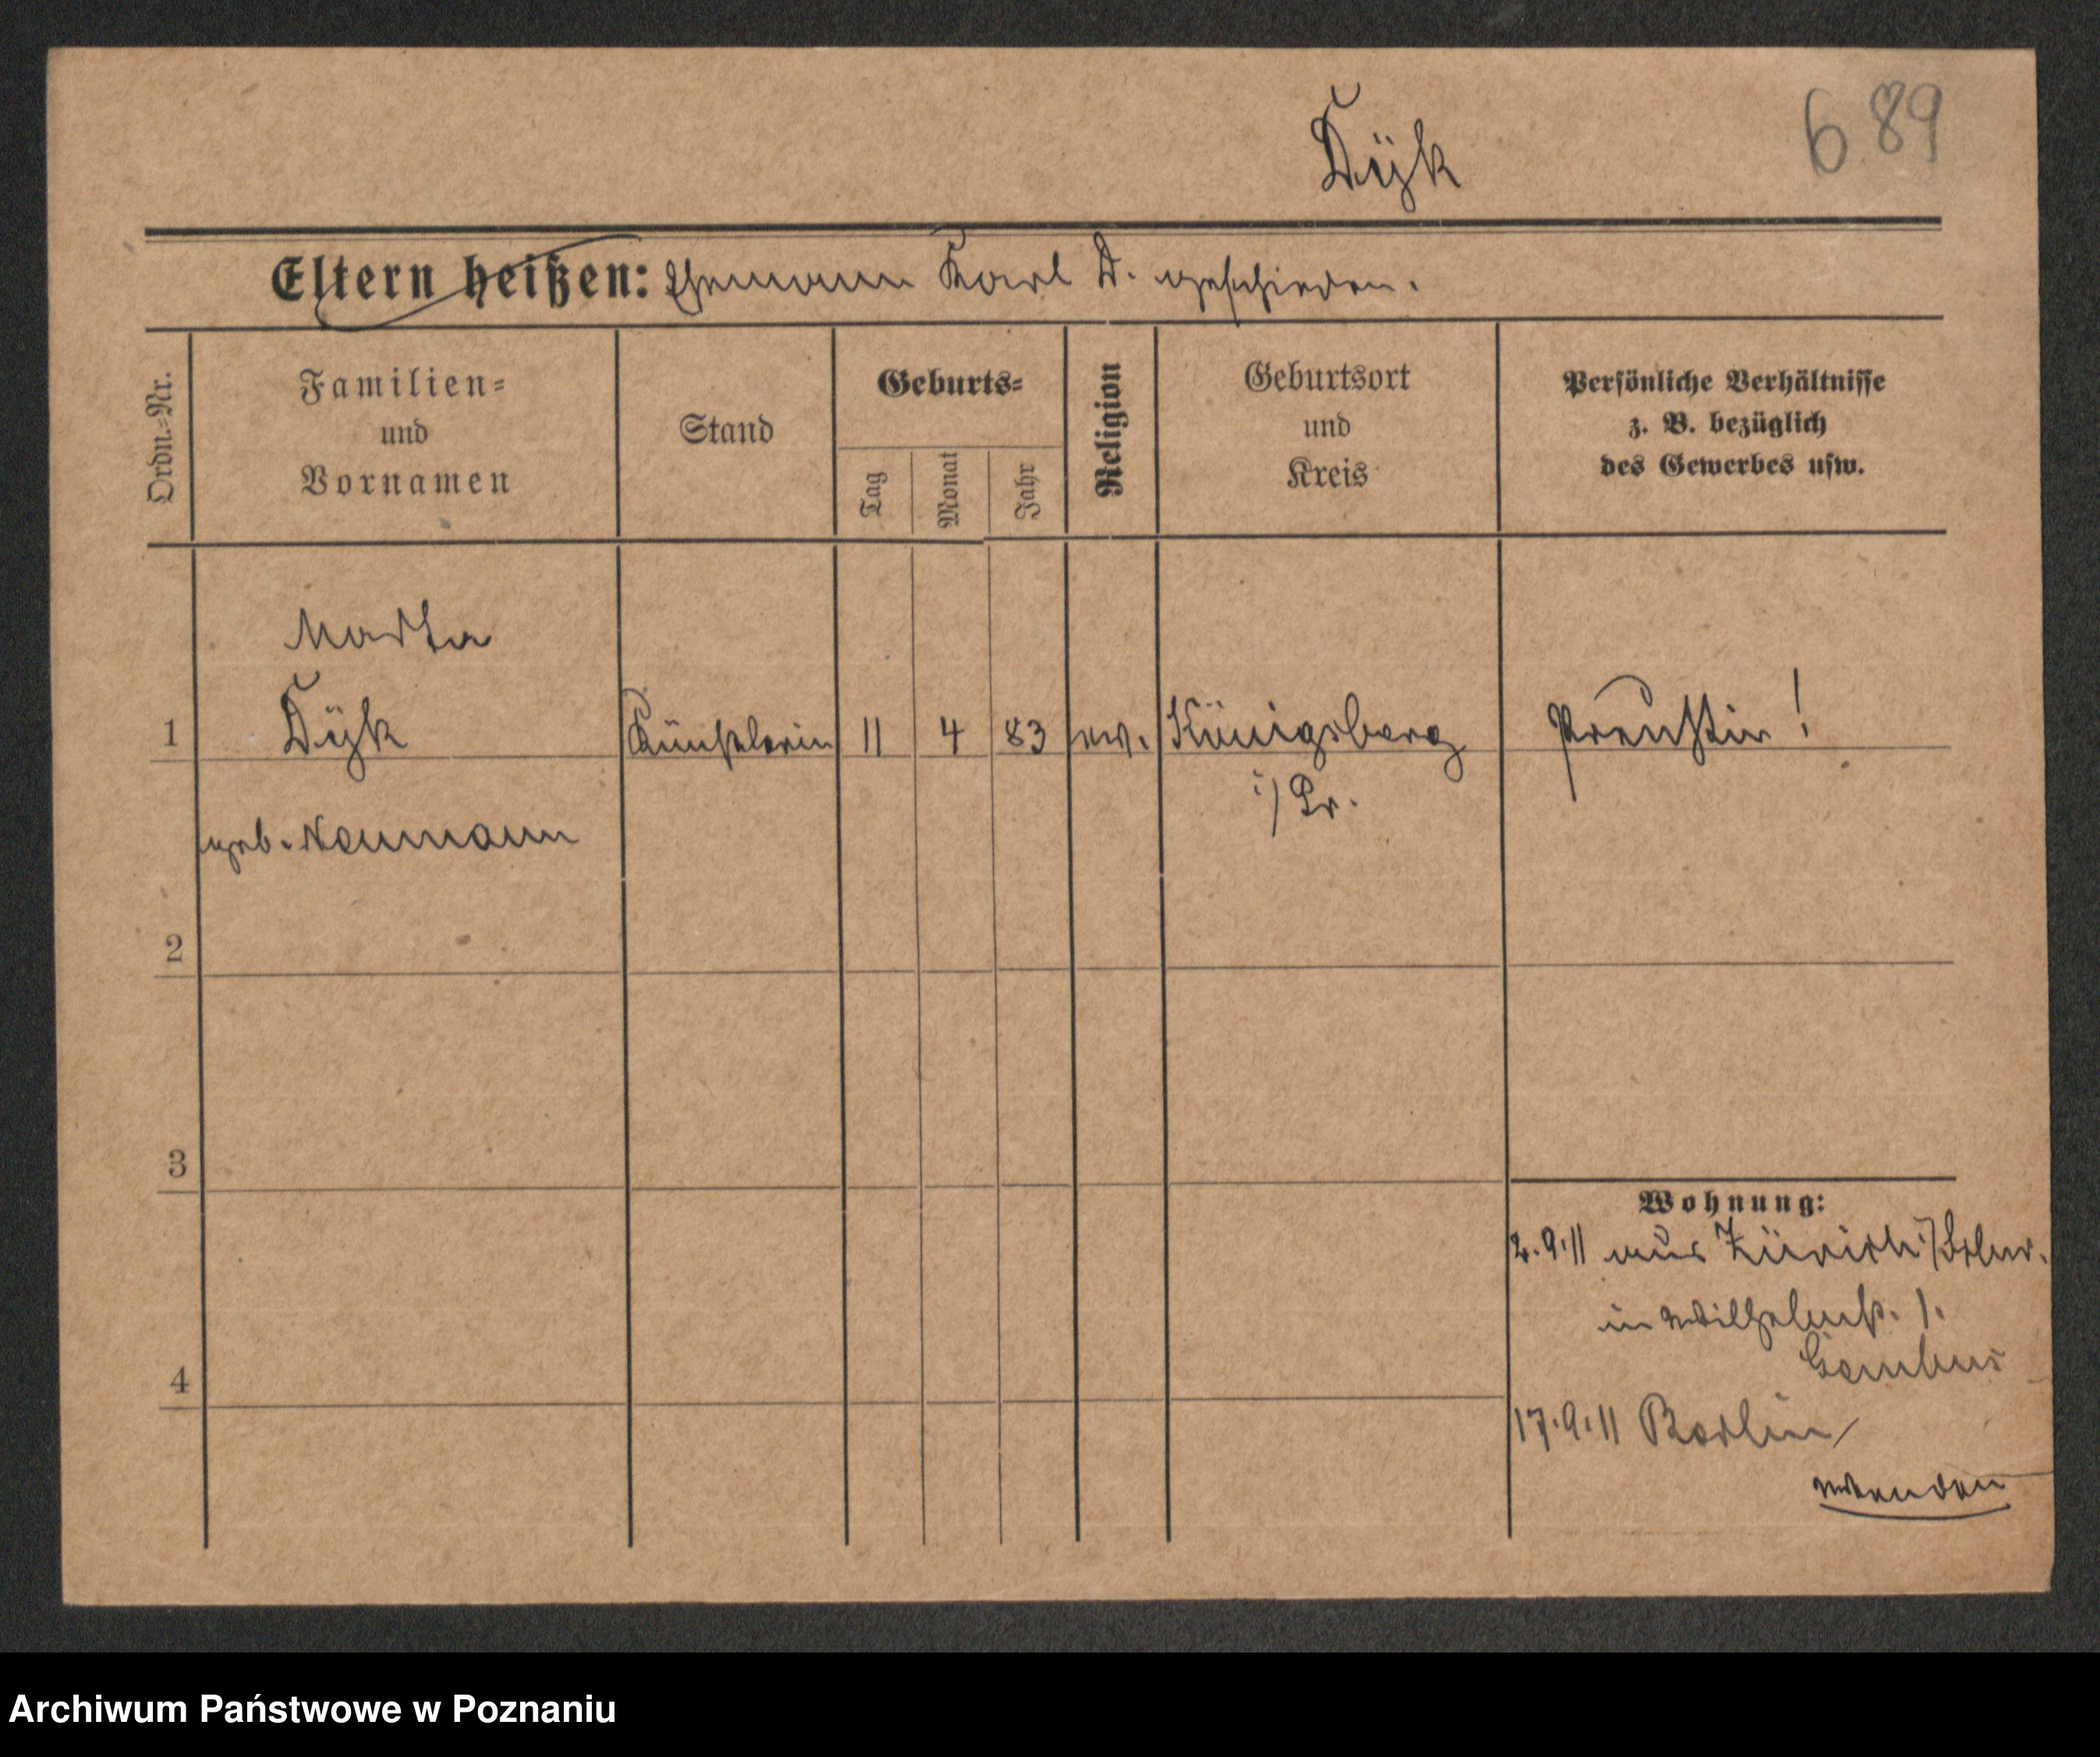 Dÿk
689
Eltern heißen: Ehemann Karl D. geschieden.
Ordn.=Nr.
Familien=
und
Vornamen
Stand
Geburts=
Tag
Monat
Jahr
Religion
Geburtsort
und
Kreis
Persönliche Verhältnisse
z. B. bezüglich
des Gewerbes usw.
Martha
1 Dÿk Künstlerin 11 4 83 ev. Königsberg Preußin!
i/Pr.
geb. Neumann
2
3
Wohnung:
2.9.11 aus Zürich
in Wilhelmstr. 1.
4
17.9.11 Berlin
wenden
Archiwum Państwowe w Poznaniu